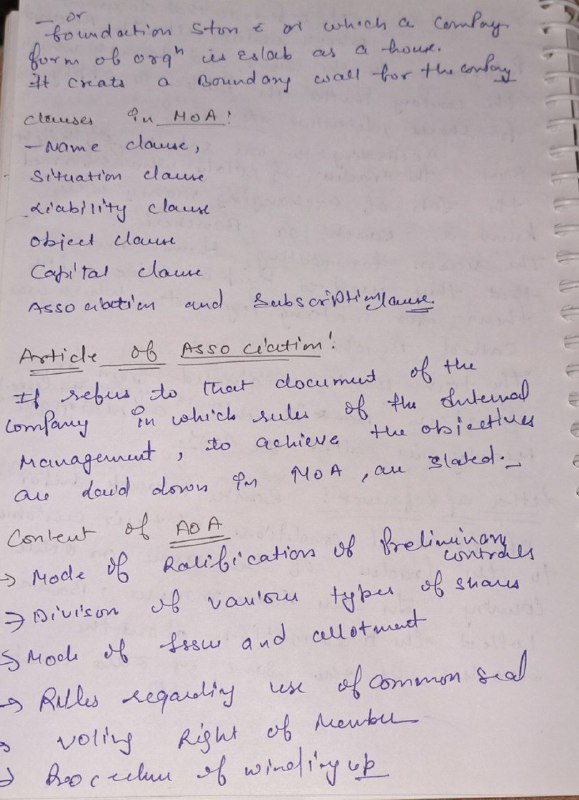 - or
foundation stone or which a company
form of orgn is estab as a house.
It creats a Boundary wall for the company
clauses in MOA:
- Name clause,
Situation clause
Liability clause
Object clause
Capital clause
Association and Subscription clause
Article of Association:
It refers to that document of the
company in which rules of the Internal
management, to achieve the objectives
are laid down in MOA, are stated.
Content of AOA
→ Mode of Ratification of Preliminary contracts
→ Divison of various types of shares
→ Mode of Issue and allotment
→ Rules regarding use of common seal
→ voting Right of Member
→ Procedure of winding up